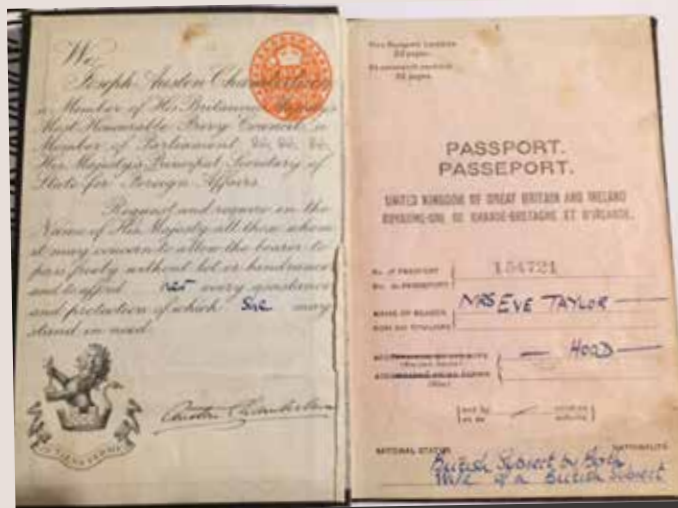 We,
Joseph Austen Chamberlain
a Member of His Britannic Majesty's
Most Honourable Privy Council, a
Member of Parliament, &c, &c, &c,
His Majesty's Principal Secretary of
State for Foreign Affairs.
Request and require in the
Name of His Majesty all those whom
it may concern to allow the bearer to
pass freely without let or hindrance
and to afford her every assistance
and protection of which she may
stand in need.
JE TIENS FERME
Austen Chamberlain
32 pages.
32 pages.
PASSPORT.
PASSEPORT.
UNITED KINGDOM OF GREAT BRITAIN AND IRELAND
ROYAUME-UNI DE GRANDE-BRETAGNE ET D'IRLANDE.
No. of PASSPORT
154721
No. du PASSEPORT
NAME OF BEARER
MRS EVE TAYLOR
NOM DU TITULAIRE
HOOD
NATIONAL STATUS
NATIONALITÉ
British Subject by Birth
Wife of a British Subject